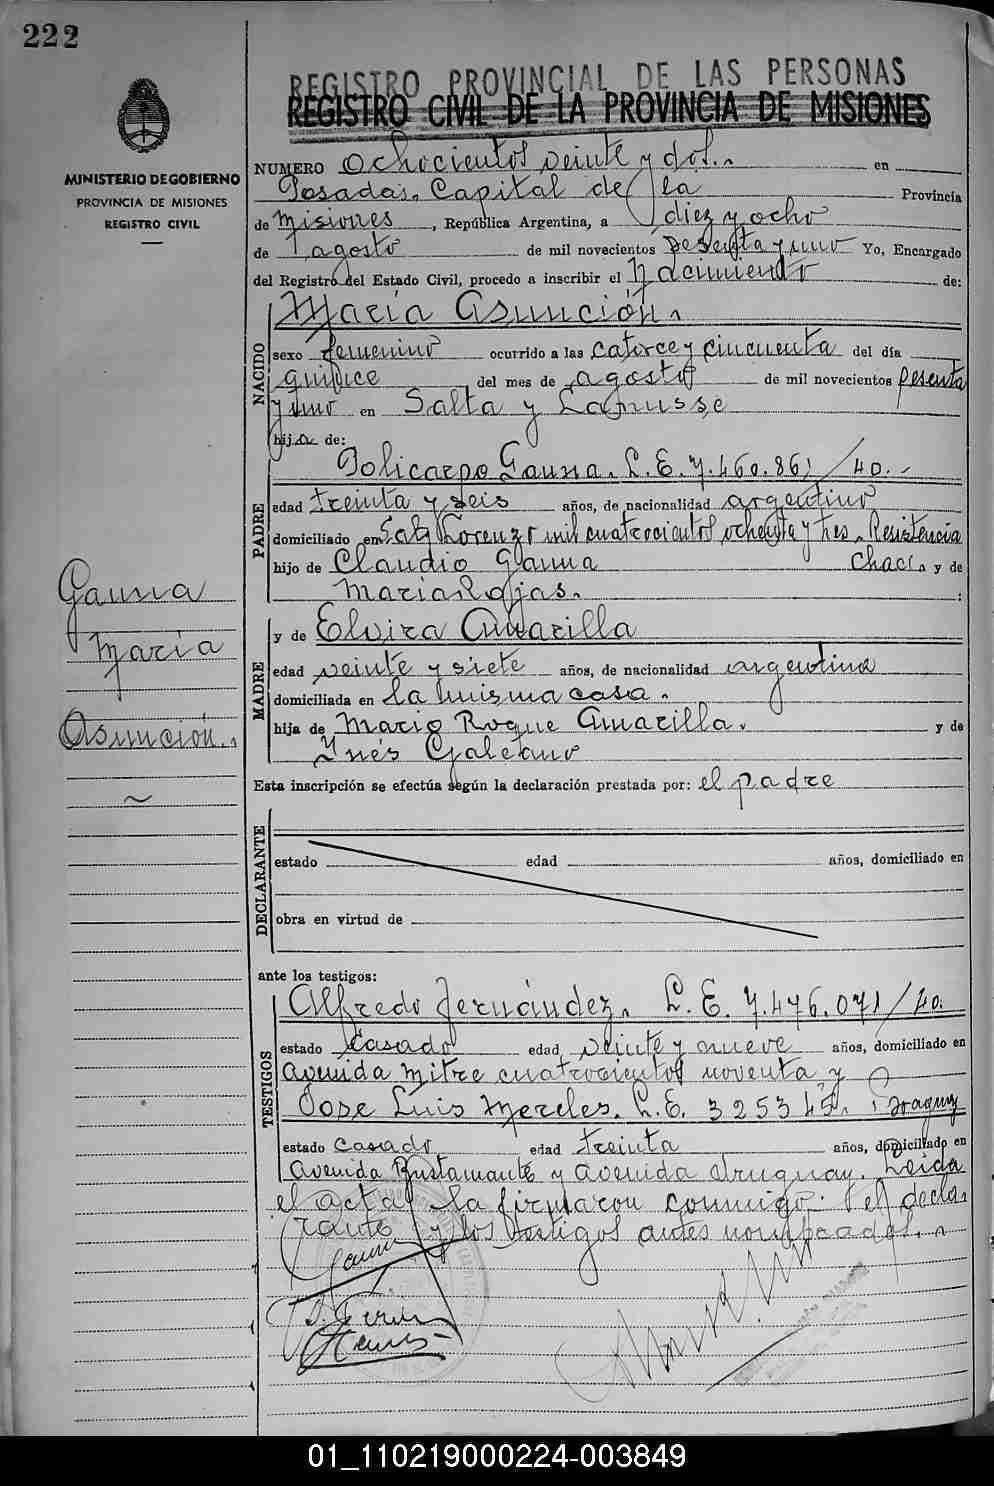 222
MINISTERIO DE GOBIERNO
PROVINCIA DE MISIONES
REGISTRO CIVIL
Gauna
María
Asunción.
REGISTRO PROVINCIAL DE LAS PERSONAS
REGISTRO CIVIL DE LA PROVINCIA DE MISIONES
NUMERO Ochocientos veinte y dos.- en
Posadas, Capital de la Provincia
de Misiones, República Argentina, a diez y ocho
de agosto de mil novecientos sesenta y uno Yo, Encargado
del Registro del Estado Civil, procedo a inscribir el Nacimiento de:
NACIDO
María Asunción.
sexo femenino ocurrido a las catorce y cincuenta del día
quince del mes de agosto de mil novecientos sesenta
y uno en Salta y Lanusse
hija de:
PADRE
Policarpo Gauna. L.E. 7.460.861/40.-
edad treinta y seis años, de nacionalidad argentino
domiciliado en San Lorenzo mil cuatrocientos ochenta y tres. Resistencia
hijo de Claudio Gauna Chaco y de
María Rojas. :
MADRE
y de Elvira Amarilla
edad veinte y siete años, de nacionalidad argentina
domiciliada en la misma casa.
hija de Mario Roque Amarilla. y de
Inés Galeano
Esta inscripción se efectúa según la declaración prestada por: el padre
DECLARANTE
estado edad años, domiciliado en
obra en virtud de
ante los testigos:
TESTIGOS
Alfredo Fernández. L.E. 7.476.071/40.
estado casado edad veinte y nueve años, domiciliado en
Avenida Mitre cuatrocientos noventa y
Jose Luis Mereles. L.E. 325345.
estado casado edad treinta años, domiciliado en
Avenida Bustamante y Avenida Uruguay. Leida
el acta la firmaron conmigo el decla
rante y los testigos antes nombrados.
Gauna
01_110219000224-003849